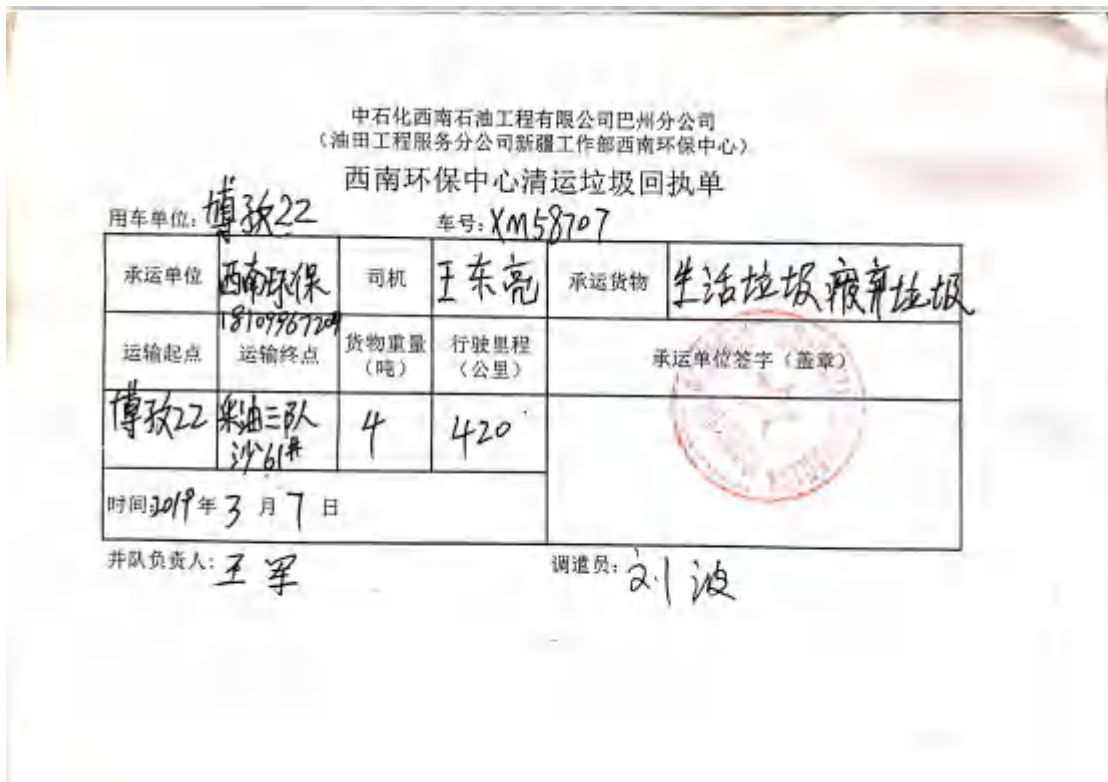 中石化西南石油工程有限公司巴州分公司
（油田工程服务分公司新疆工作部西南环保中心）
西南环保中心清运垃圾回执单
用车单位：博孜22 车号：XM58707
承运单位 西南环保 司机 王东亮 承运货物 生活垃圾 废弃垃圾
181099672
运输起点 运输终点 货物重量（吨） 行驶里程（公里） 承运单位签字（盖章）
博孜22 采油三队 4 420
沙61#
时间：2019年3月7日
井队负责人：王军 调遣员：刘波